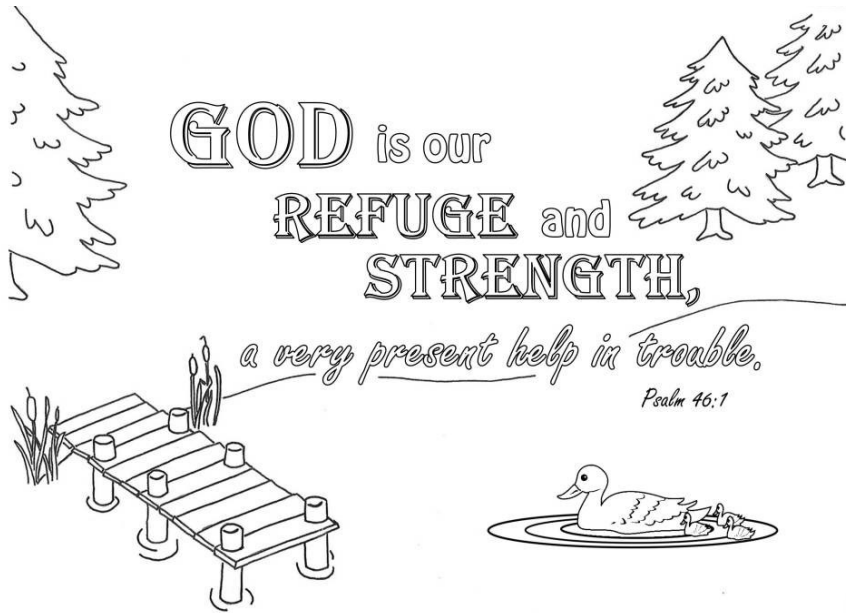 GOD is our
REFUGE and
STRENGTH,
a very present help in trouble.
Psalm 46:1